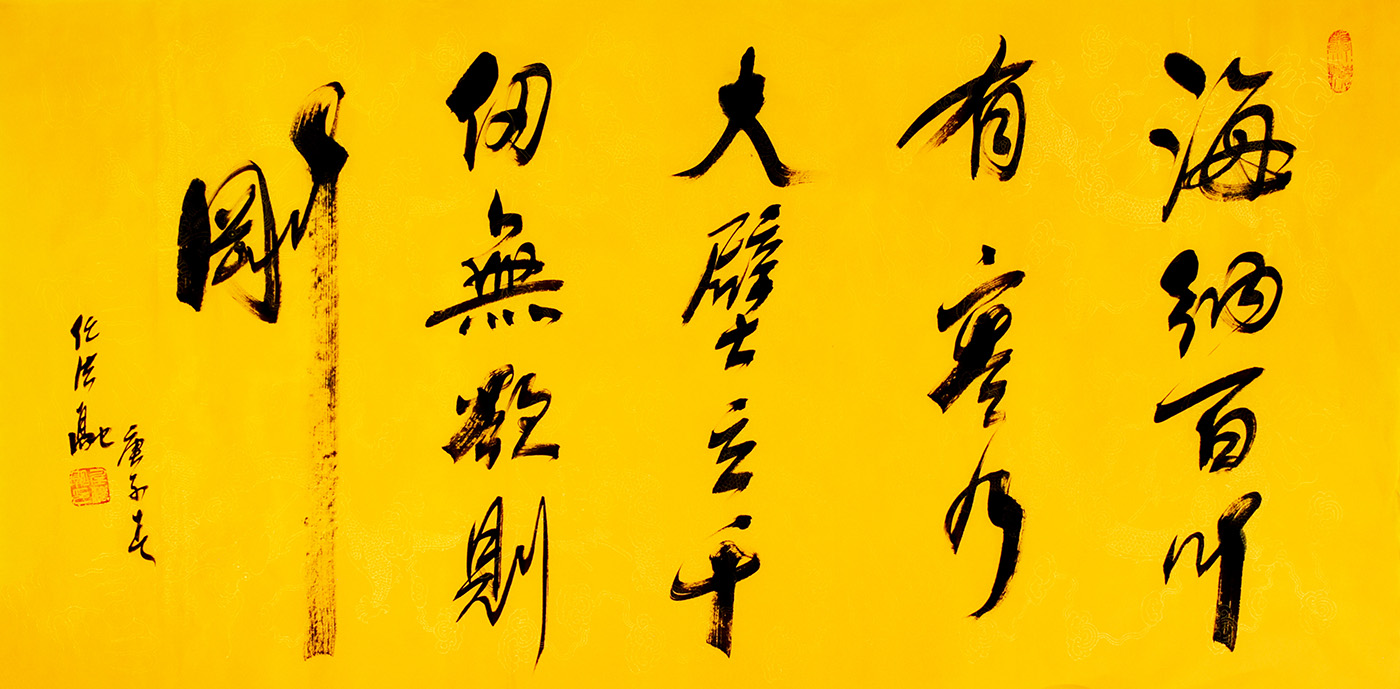 海納百川
有容乃
大壁立千
仞無欲則
剛
庚子春
任法融